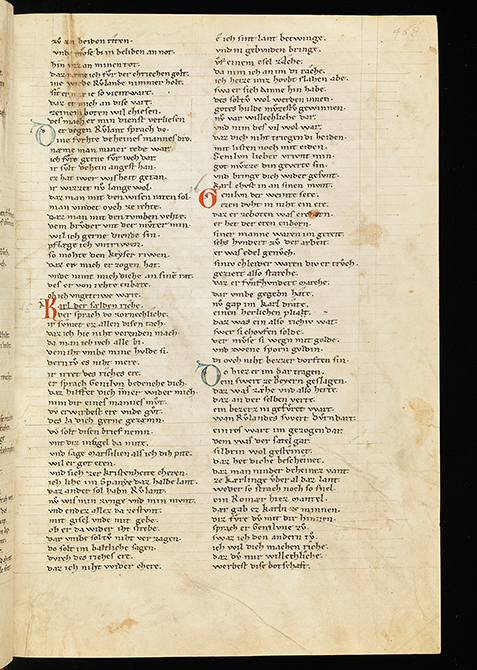 zv an heiden riten.
vnd mvse bi in beliben an not.
hin vnz an minen tot.
daz næme ich fvr der chriechen golt.
me wirde Rvlande nimmer holt.
sit er mir ie so vient wart.
daz er mich an dise vart.
zeinem boten wil chiesen.
des mach er min dienst verliesen
Do der degen Rvlant sprach do.
ine fvrhte deheines mannes dro.
næme man miner rede war.
ich fvre gerne fvr iwch dar.
ir svlt dehein angest han.
ez hat iwer wil heil getan.
ir wirret nv lange wol.
daz man mit den wisen raten sol.
man vindet ovch ze rehte.
daz man mit den tvmben vehte.
dem brvder vnt der mvter min.
wil ich gerne diende sin.
pflæge ich vntriwen.
so mohte den keyser riwen.
daz er mich erzogen hat.
vnde nimt mich diche an sine rat.
des er von rehte enbære.
ob ich vngetriwe wære.
Karl der sælden riche.
der sprach do zornechliche.
ir svmet ez allen disen tach.
daz ich hie niht verenden mach.
da man ich iwch alle bi.
dem iht vmbe mine hulde si.
dern tv es niht mere.
ir irret des riches ere.
er sprach Genilvn bedenche dich.
daz hilfet dich imer wider mich.
nim dir eines manvel mvt.
dv erwirbest ere vnde gvt.
des da dich gerne gezam.
dv solt disen brief nemn.
vnt diz insigel da mite.
vnd sage Marsilien als ich dih pite.
wil er got eren.
vnd sich zer kristenheite cheren.
ich lihe im Spanye daz halbe lant.
daz ander sol habn Rvlant.
nv wil min zvnge vnd min mvnt.
vnd ender aller da zestvnt.
mit gisel vnde mit gebe.
ob er da wider iht strebe.
daz vmbe soltv niht verzagen.
dv solt im baltliche sagen.
dvrch des riches ere.
daz ich niht wider chere.
e ich sin lant betwinge.
vnd in gebvnden bringe.
vf einem esel zAche.
da nim ich an im di rache.
ich heize im daz hovbt slahen abe.
swa er sich danne hin habe.
des soltv wol werden innen.
gotes hulde mvstv gewinnen.
nv var willechliche dar.
vnd nim des vil wol war.
daz dich niht triegen di heiden.
mit listen noch mit eiden.
Genilvn lieber vrivnt min.
got mvzze din geverte sin.
vnd bringe dich wider gesvnt.
karl chvst in an sinen mvnt.
Genilvn der weinte sere.
ezen dvht in niht ein ere.
daz er ze boten was erchorn.
er het der eren enborn.
siner manne waren im gereit.
sehs hvndert zv der arbeit.
er was edel genvch.
siniv chleider waren div er trvch.
geziert also starche.
daz er fvnfhvndert marche.
dar vmbe gegebn hate.
nv gap im karl drate.
einen herlichen phalt.
daz was ein also richiv wat
swer si chovfen solde.
der mvse si wegn mit golde.
vnd zwene sporn gvldin.
di ovch niht bezzer dorften sin.
Do hiez er im dar tragen.
ein swert ze Beyern geslagen.
daz was zæhe vnd also herte.
daz an der selben verte.
ein bezerz ni gefvret wart.
wan Rvlandes swert dvrndart.
ein ros wart im gezogen dar.
dem was der satel gar.
silbrin wol gesteinet.
daz het diche bescheinet.
daz man ninder deheinez vant.
ze kærlinge vber al daz lant.
weder so starch noch so snel.
ein Romær hiez mantel.
der gab ez karln ze minnen.
diz fvre dv mit dir hinnen.
sprach er Genilvne zv.
swar ich den andern tv.
ich wil dich machen riche.
daz dv mir willechliche.
werbest dise botschaft.